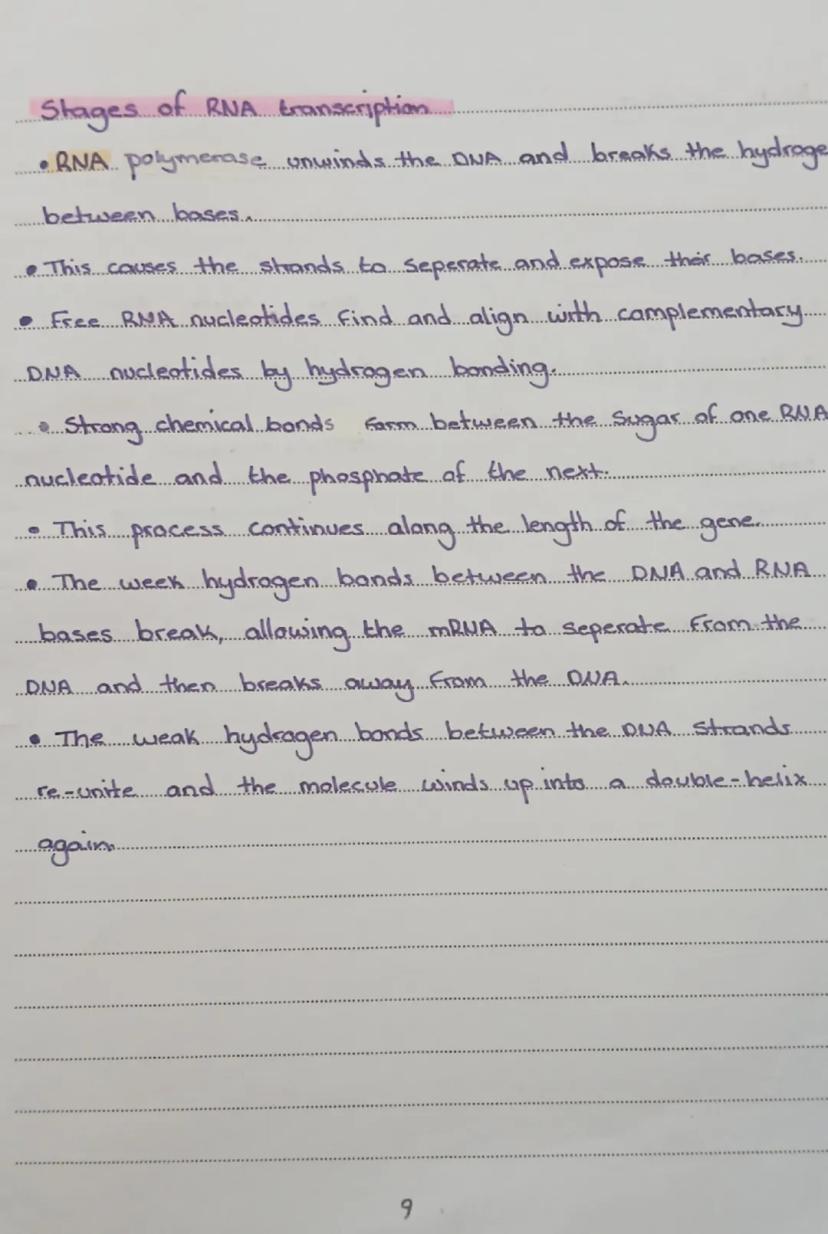 Stages of RNA transcription
• RNA polymerase unwinds the DNA and breaks the hydroge
between bases.
• This causes the strands to seperate and expose their bases.
• Free RNA nucleotides find and align with complementary
DNA nucleotides by hydrogen bonding.
• Strong chemical bonds form between the sugar of one RNA
nucleotide and the phosphate of the next.
• This process continues along the length of the gene.
• The week hydrogen bonds between the DNA and RNA
bases break, allowing the mRNA to seperate from the
DNA and then breaks away from the DNA.
• The weak hydrogen bonds between the DNA strands
re-unite and the molecule winds up into a double-helix
again.
9